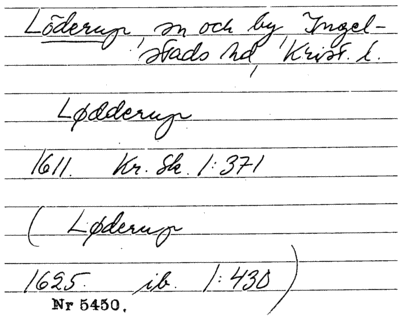 Löderup, sn och by, Ingel-
stads hd, Krist. l.
Lødderup
1611. Kr. Sk. 1:371
( Løderup
1625. ib. 1:430 )
Nr 5450.